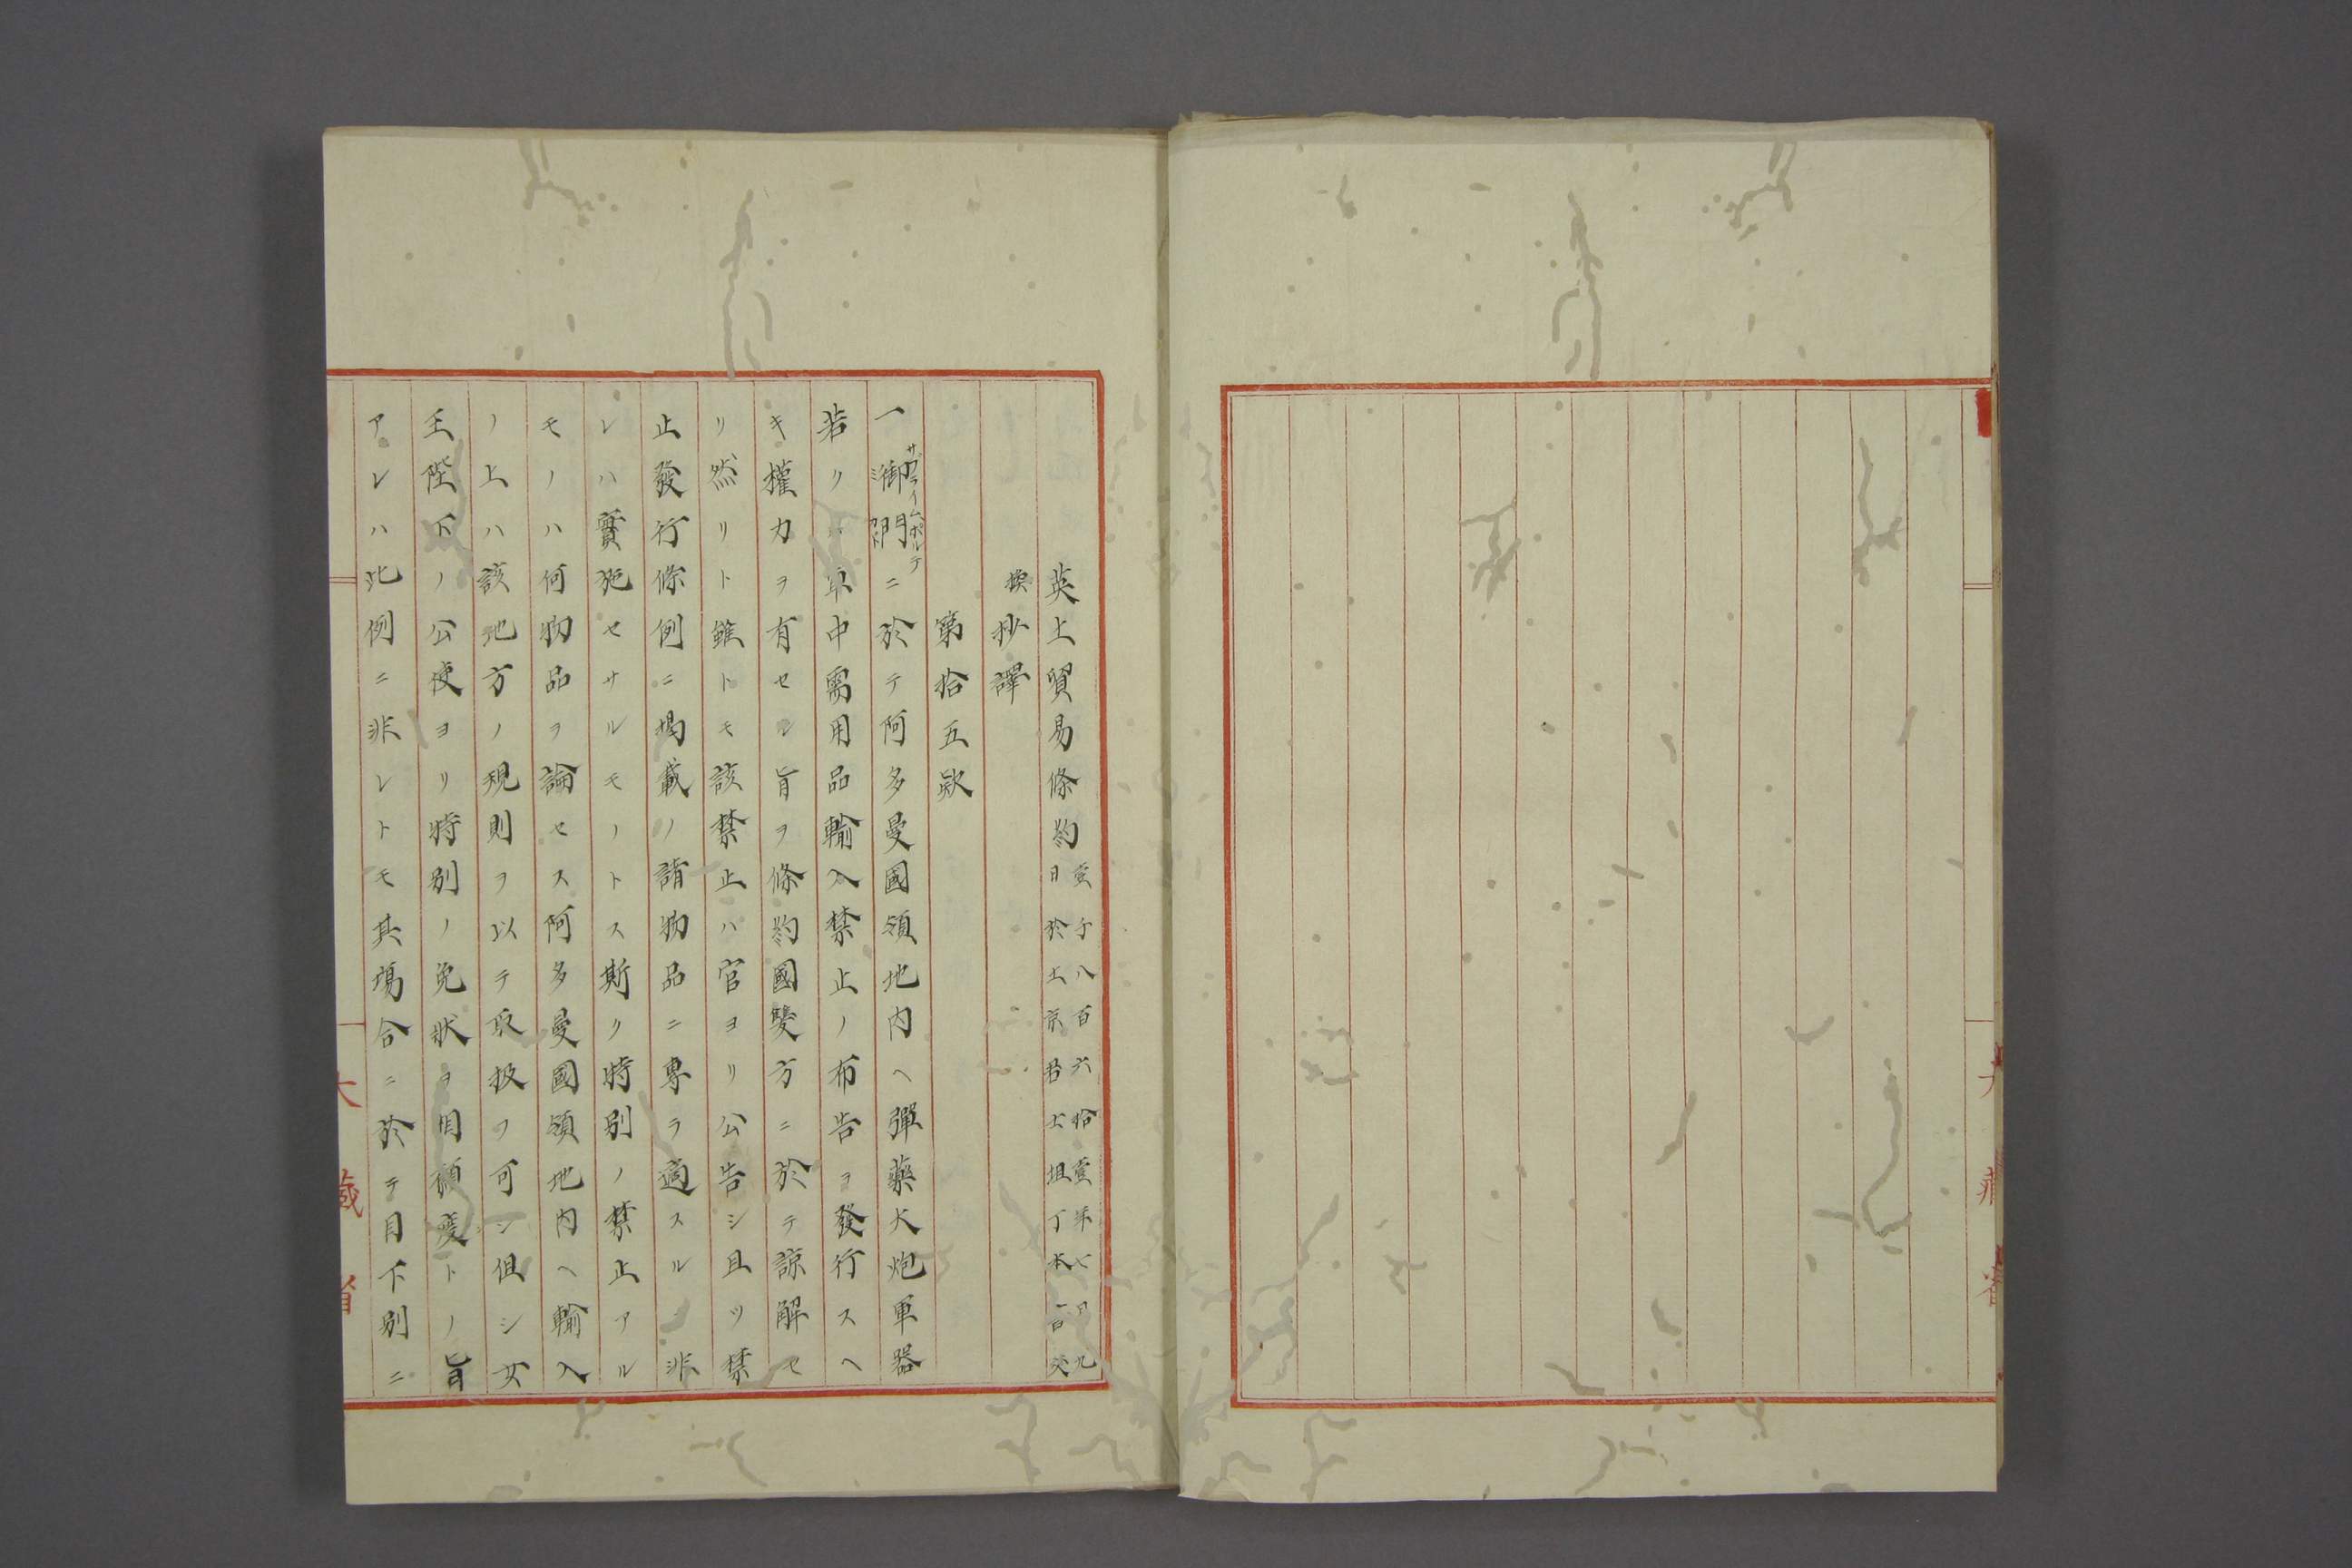 英土貿易條約壹千八百六拾壹年七月九
日於土京君士坦丁本一百交
換抄譯
第拾五欵
一御門ニ於テ阿多曼國領地内ヘ彈藥大炮軍器
サブライムポルテ
ミカド
若クハ軍中需用品輸入禁止ノ布告ヲ發行スヘ
キ權力ヲ有セル旨ヲ條約國雙方ニ於テ諒解セ
リ然リト雖トモ該禁止ハ官ヨリ公告シ且ツ禁
止發行條例ニ掲載ノ諸物品ニ專ラ適スルニ非
レハ實施セサルモノトス斯ク特別ノ禁止アル
モノハ何物品ヲ論セス阿多曼國領地内ヘ輸入
ノ上ハ該地方ノ規則ヲ以テ取扱フ可シ但シ女
王陛下ノ公使ヨリ特別ノ免状ヲ相願度トノ旨
アレハ此例ニ非レトモ其塲合ニ於テ目下別ニ
大藏省
大藏省